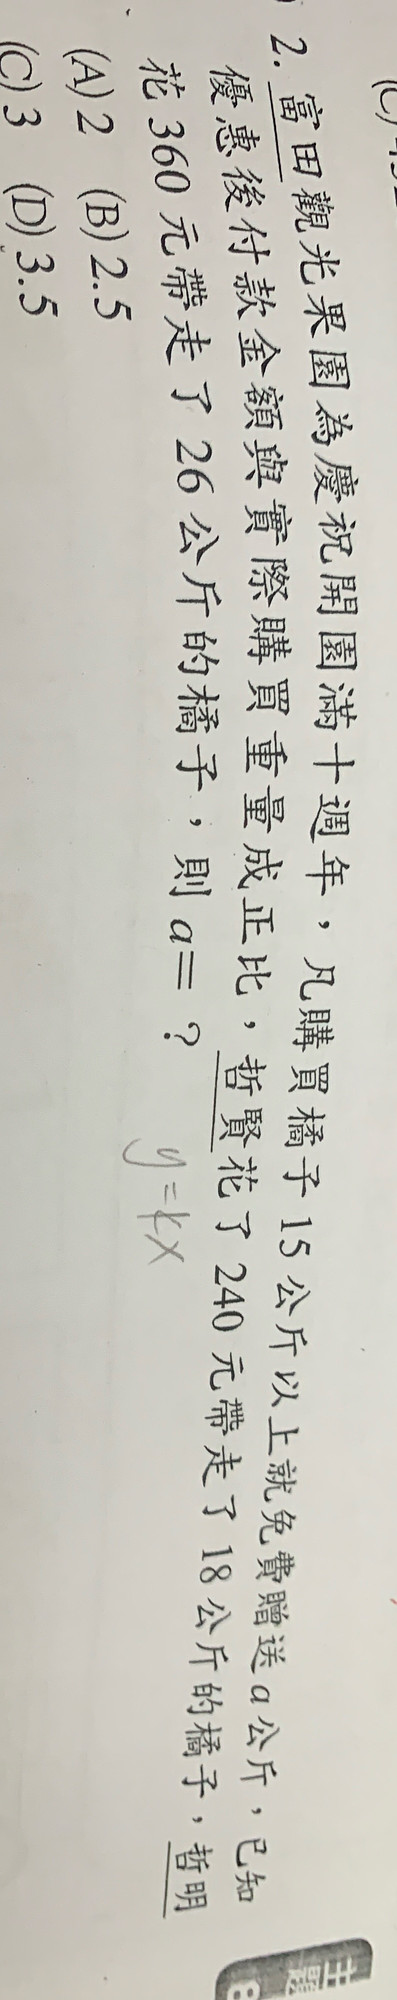 2. 富田觀光果園為慶祝開園滿十週年，凡購買橘子15公斤以上就免費贈送a公斤，已知
優惠後付款金額與實際購買重量成正比，哲賢花了240元帶走了18公斤的橘子，哲明
花360元帶走了26公斤的橘子，則a=？
y=kx
(A)2 (B)2.5
(C)3 (D)3.5
主題
8